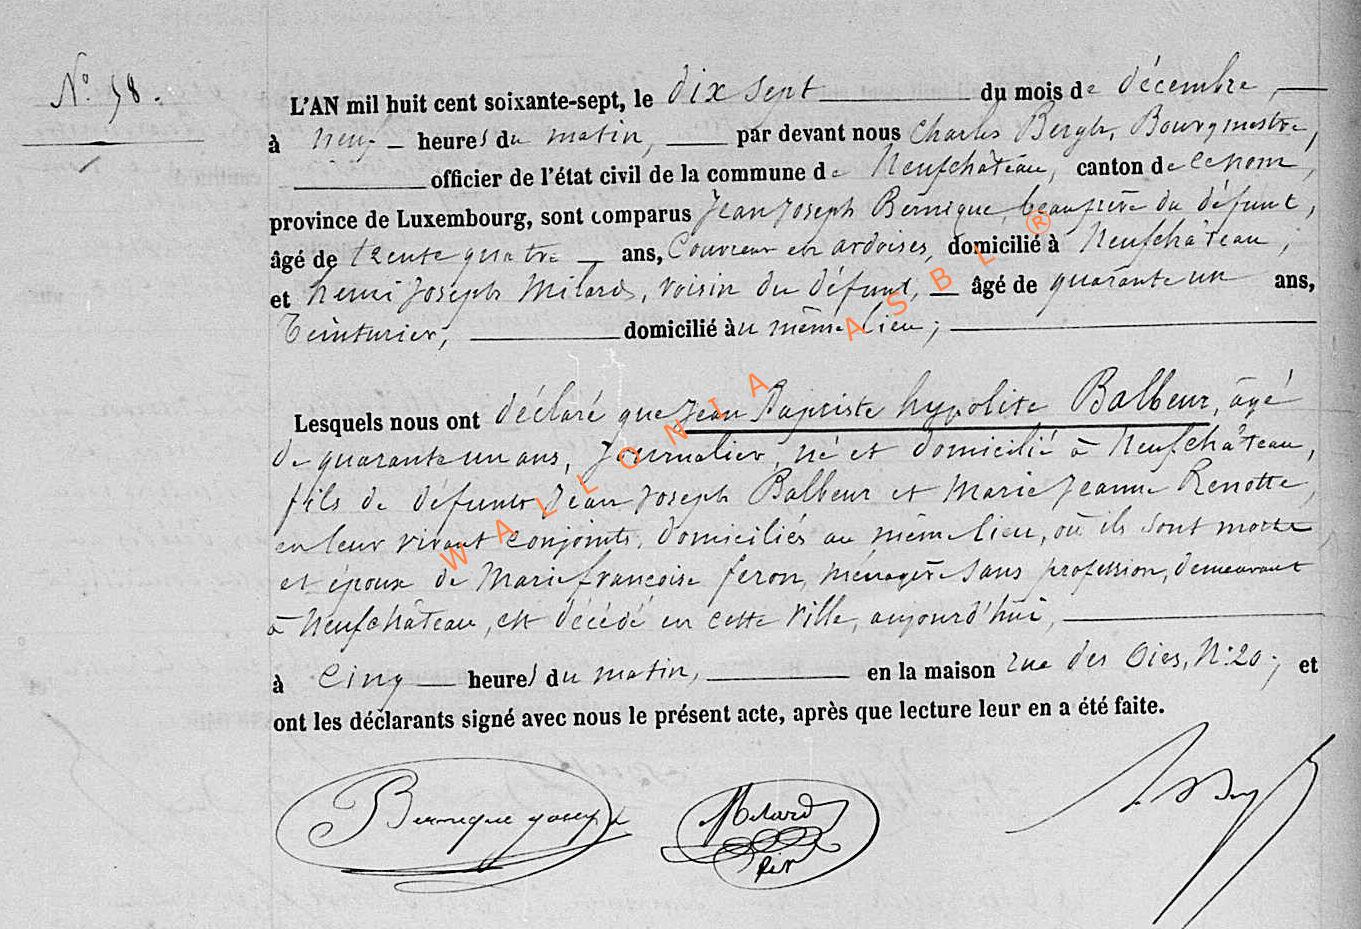 N° 58.
L'AN mil huit cent soixante-sept, le dix sept du mois de décembre,
à neuf heures du matin, par devant nous Charles Bergh, Bourgmestre,
officier de l'état civil de la commune de Neufchâteau, canton de ce nom,
province de Luxembourg, sont comparus Jean Joseph Bernique, beaufrère du défunt,
âgé de trente quatre ans, Couvreur en ardoises, domicilié à Neufchâteau,
et henri Joseph Milard, voisin du défunt, âgé de quarante un ans,
Teinturier, domicilié au même lieu;
Lesquels nous ont déclaré que Jean Baptiste hypolite Balbeur, âgé
de quarante un ans, Journalier, né et domicilié à Neufchâteau,
fils de défunts Jean Joseph Balbeur et Marie Jeanne Renotte,
en leur vivant conjoints, domiciliés au même lieu, où ils sont morts
et époux de Marie françoise feron, ménagère sans profession, demeurant
à Neufchâteau, est décédé en cette ville, aujourd'hui,
à cinq heures du matin, en la maison rue des Oies, N° 20; et
ont les déclarants signé avec nous le présent acte, après que lecture leur en a été faite.
Bernique Joseph Milard
WALLONIA ASBL ®